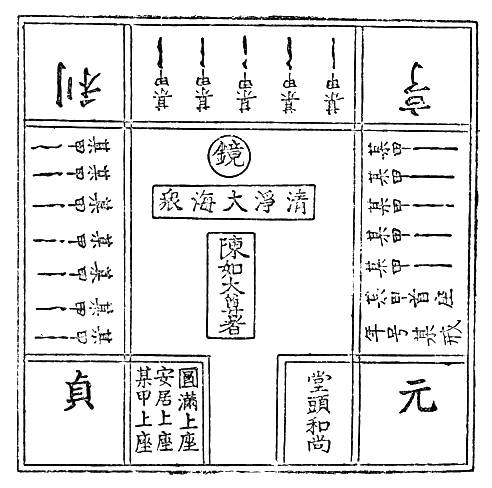 利
某甲
某甲
某甲
某甲
某甲
亨
鏡
清淨大海衆
陳如大尊者
某甲
某甲
某甲
某甲
某甲
某甲
某甲
某甲
某甲
某甲
某甲
某甲
某甲首座
年号某戒
元
堂頭和尚
圓滿上座
安居上座
某甲上座
貞